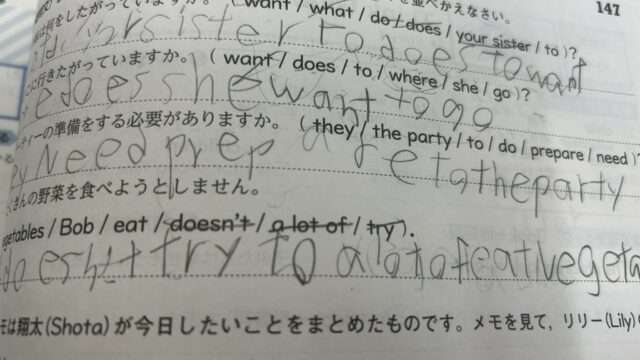 を並べかえなさい。 147
は何をしたがっていますか。 ( want / what / do / does / your sister / to )?
sister to does to want
に行きたがっていますか。 ( want / does / to / where / she / go )?
e does she want to go
ーティーの準備をする必要がありますか。 ( they / the party / to / do / prepare / need )?
ey Need prep a re to the party
さんの野菜を食べようとしません。
egetables / Bob / eat / doesn't / a lot of / try ).
doesn't try to a lot of eat vegeta
モは翔太(Shota)が今日したいことをまとめたものです。メモを見て，リリー(Lily)